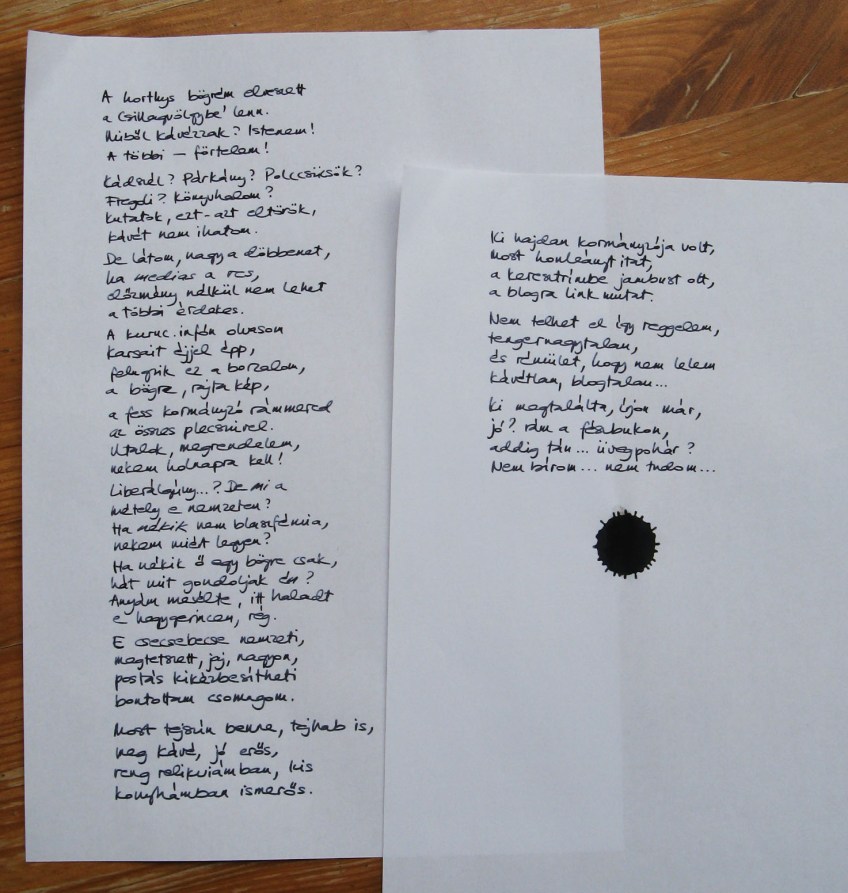 A horthys bögrém elveszett
a Csillagvölgybe' lenn.
Miből kávézzak? Istenem!
A többi — förtelem!
Kádszél? Párkány? Polccsücsök?
Fregoli? Könyvhalom?
Kutatok, ezt-azt eltörök,
kávét nem ihatom.
De látom, nagy a döbbenet,
ha medias a res,
előzmény nélkül nem lehet
a többi érdekes.
A kuruc.infón olvasom
karsait éjjel épp,
felnyúik ez a borzalom,
a bögre, rajta kép,
a fess kormányzó rámmered
az összes plecsnivel.
Utalok, megrendelem,
nekem holnapra kell!
Liberálgúny...? De mi a
métely e nemzeten?
Ha nékik nem blaszfémia,
nekem miért legyen?
Ha nékik ő egy bögre csak,
hát mit gondoljak én?
Anyám mesélte, itt haladt
e hegygerincen, rég.
E csecsebecse nemzeti,
megtetszett, jaj, nagyon,
postás kikézbesítheti
bontottam csomagom.
Most tejszín benne, tejhab is,
meg kávé, jó erős,
reng relikviámban, kis
konyhámban ismerős.
Ki hajdan kormányzója volt,
most honleányt itat,
a keresztrímbe jambust olt,
a blogra link mutat.
Nem telhet el így reggelem,
tengernagytalan,
és rémület, hogy nem lelem
kávétlan, blogtalan...
Ki megtalálta, írjon már,
jó? rám a fészbukon,
addig tán... üvegpohár?
Nem bírom... nem tudom...